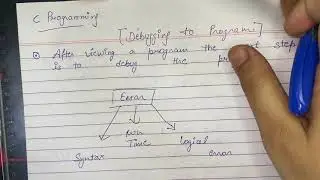 C Programming
[Debugging to Program]
After viewing a program the step
is to debug the
[Error]
Run
Time
Logical
error
Syntax